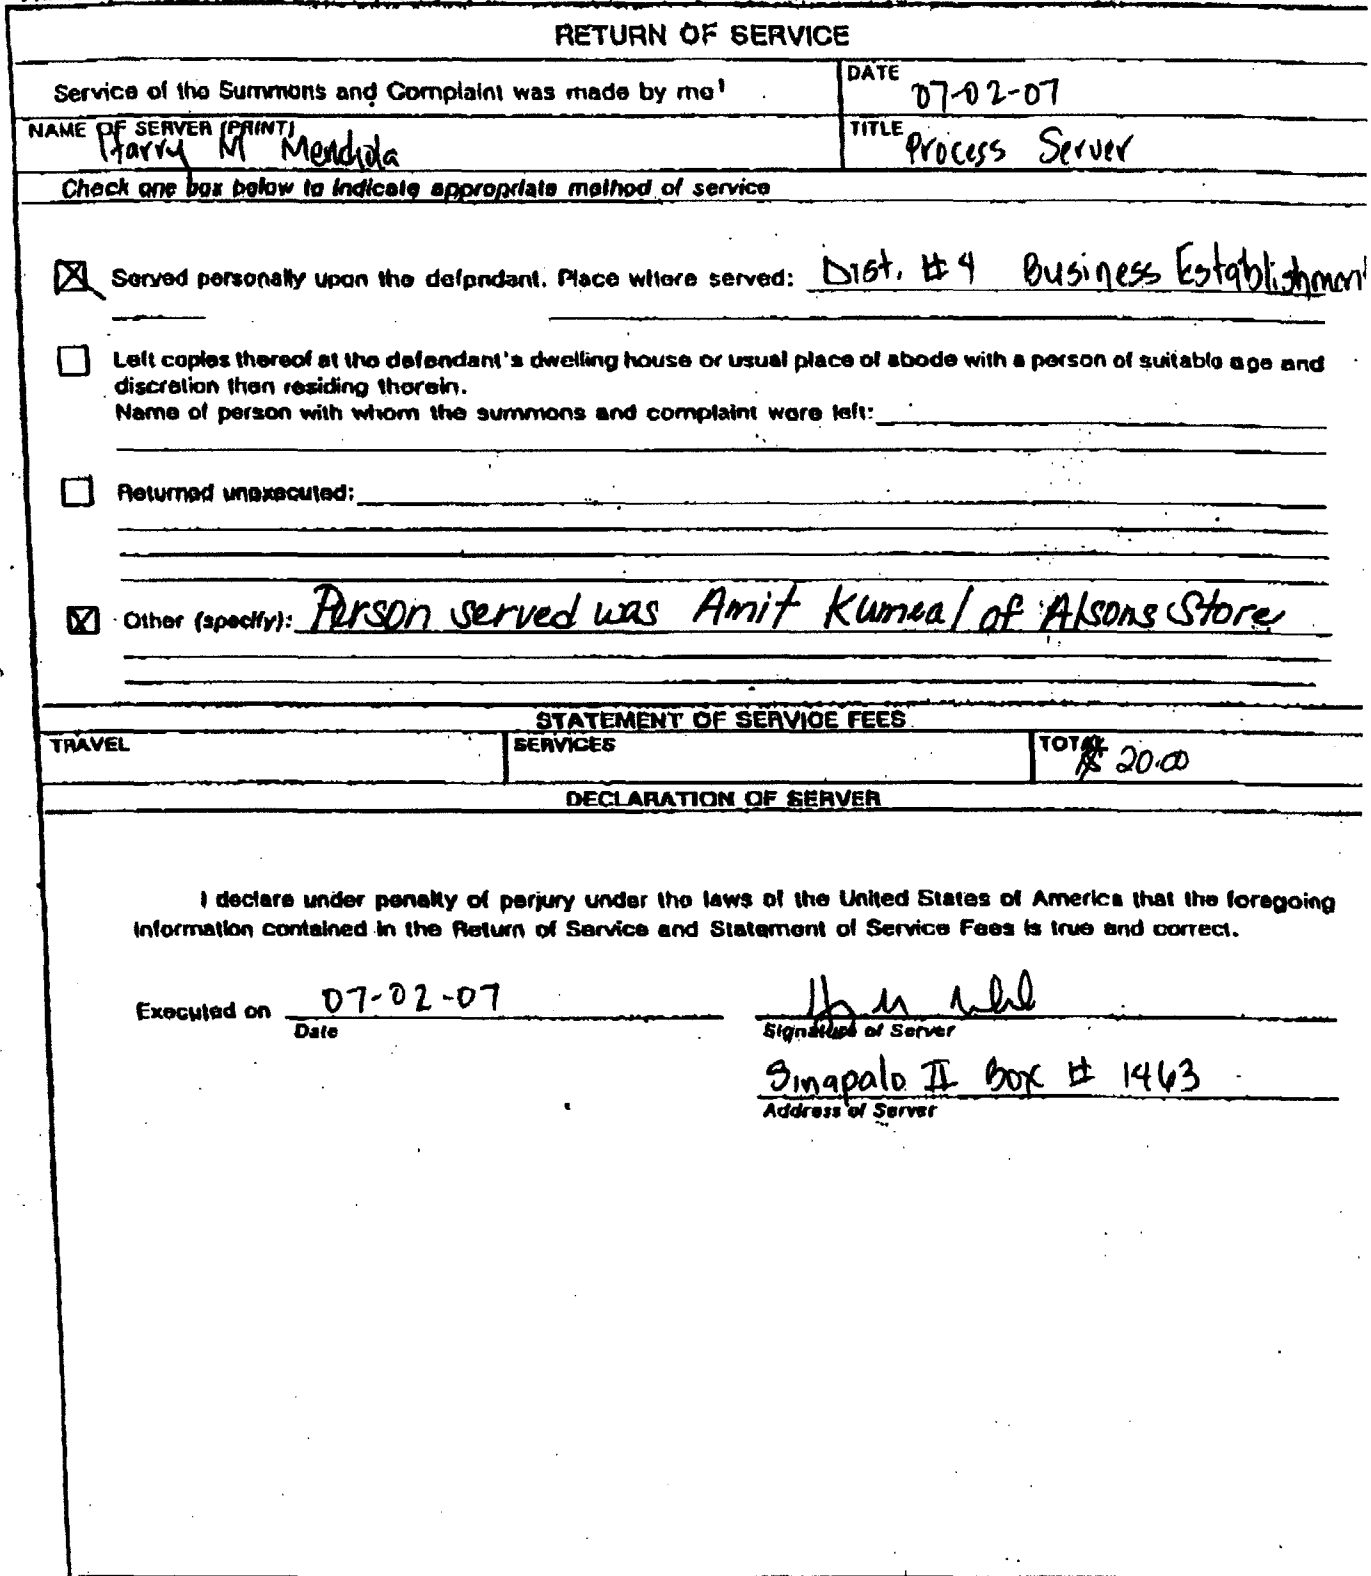 RETURN OF SERVICE
Service of the Summons and Complaint was made by me¹
DATE
07-02-07
NAME OF SERVER (PRINT)
Harry M Mendiola
TITLE
Process Server
Check one box below to indicate appropriate method of service
Served personally upon the defendant. Place where served: Dist. #4 Business Establishment
Left copies thereof at the defendant's dwelling house or usual place of abode with a person of suitable age and
discretion then residing therein.
Name of person with whom the summons and complaint were left:
Returned unexecuted:
Other (specify): Person served was Amit Kumeal of Alsons Store
STATEMENT OF SERVICE FEES
TRAVEL
SERVICES
TOTAL
$ 20.00
DECLARATION OF SERVER
I declare under penalty of perjury under the laws of the United States of America that the foregoing
information contained in the Return of Service and Statement of Service Fees is true and correct.
Executed on 07-02-07
Date
Signature of Server
Sinapalo II Box # 1463
Address of Server